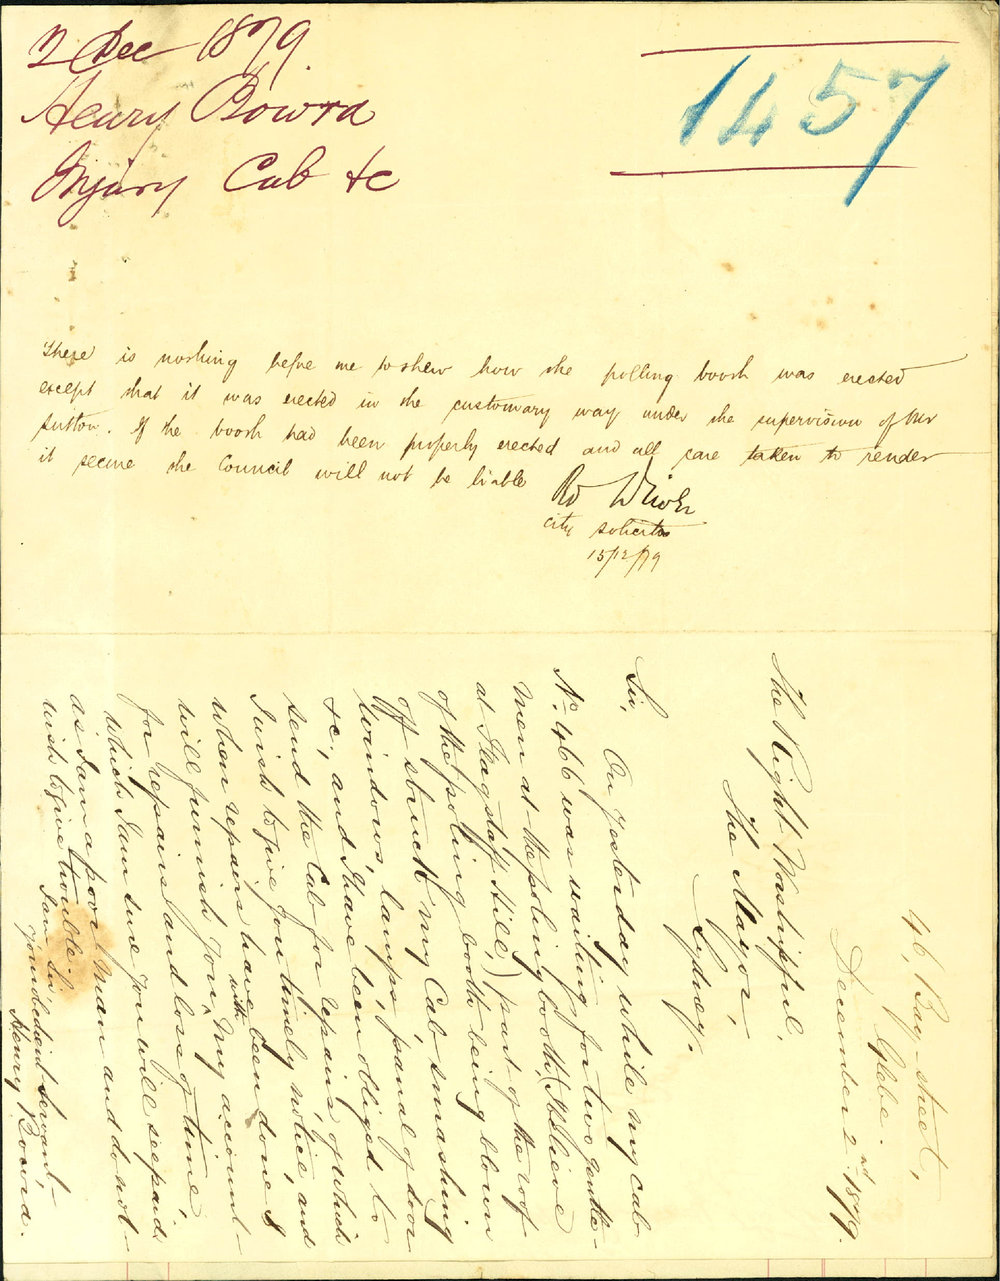 2 Dec 1879.
Henry Bowra
Injury Cab &c
1457
There is nothing before me to shew how the polling booth was erected
except that it was erected in the customary way under the supervision of Mr
Sutton. If the booth had been properly erected and all care taken to render
it secure the Council will not be liable
City Solicitor
15/12/79
46, Bay-street,
Glebe.
December 2nd 1879.
The Right Worshipful,
The Mayor,
Sydney.
Sir,
On yesterday while my cab
No. 466 was waiting for two gentle-
men at the poling booth, (I believe
at Flagstaff Hill,) part of the roof
of the poling booth being blown
off struck my Cab smashing
windows, lamps, panal of door
&c., and I have been obliged to
send the Cab for repairs of which
I wish to give you timely notice, and
when repairs have been done I
will furnish you with my account
for repairs and loss of time,
which I am sure you will see paid
as I am a poor man and do not
wish to give trouble.
I am Sir,
Your obedient servant
Henry Bowra.